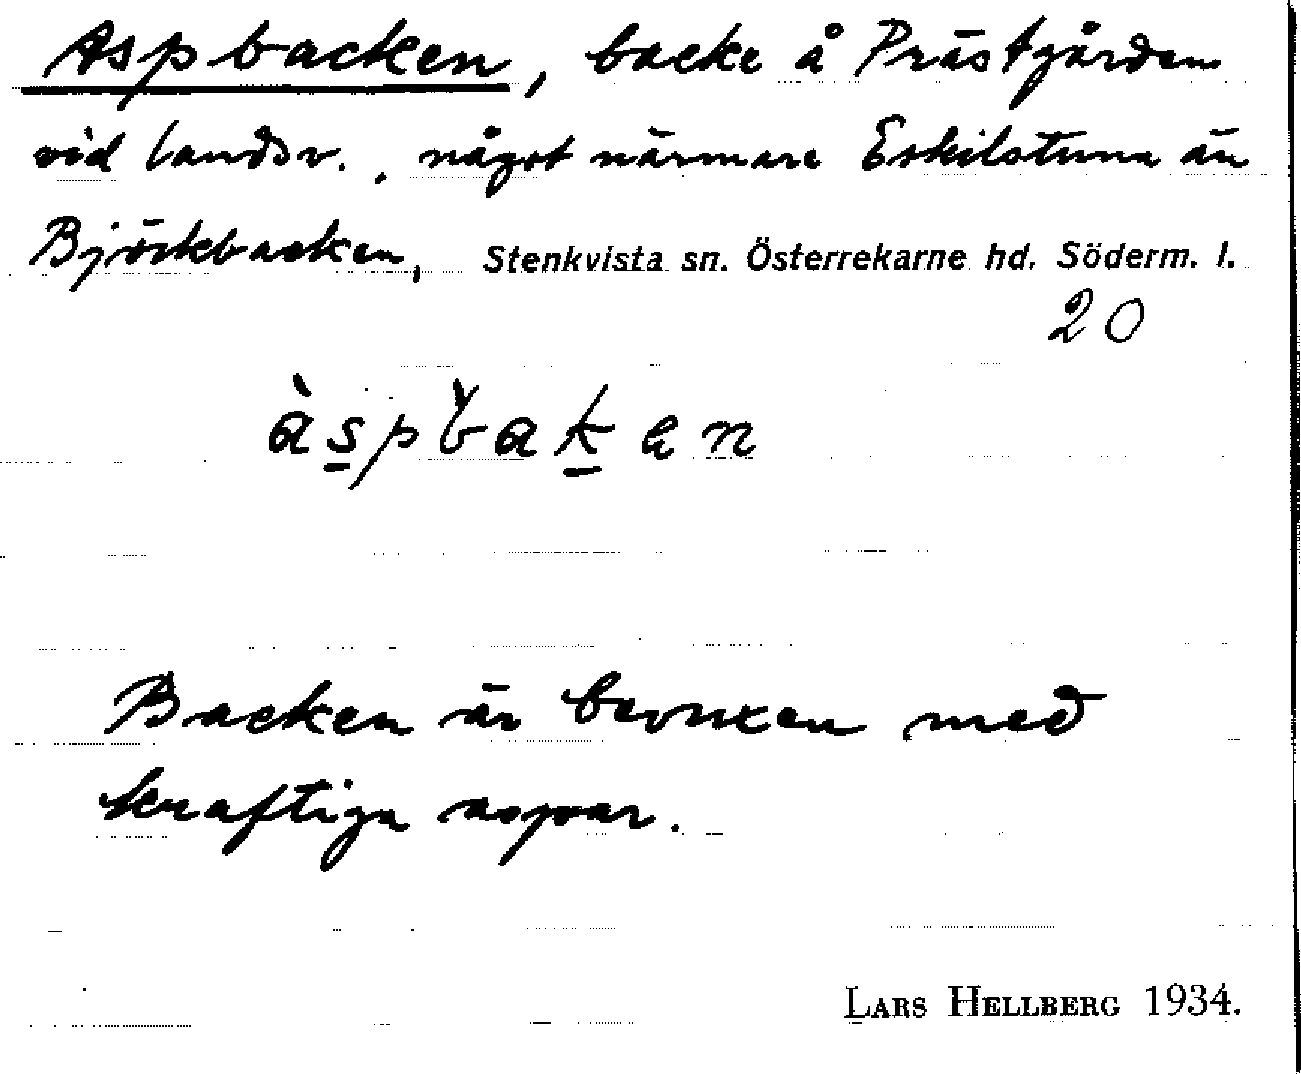 Aspbacken, backe å Prästgården
vid landsv., något närmare Eskilstuna än
Björkbacken, Stenkvista sn. Österrekarne hd. Söderm. l.
20
àspb̌aken
Backen är bevuxen med
kraftiga aspar.
LARS HELLBERG 1934.